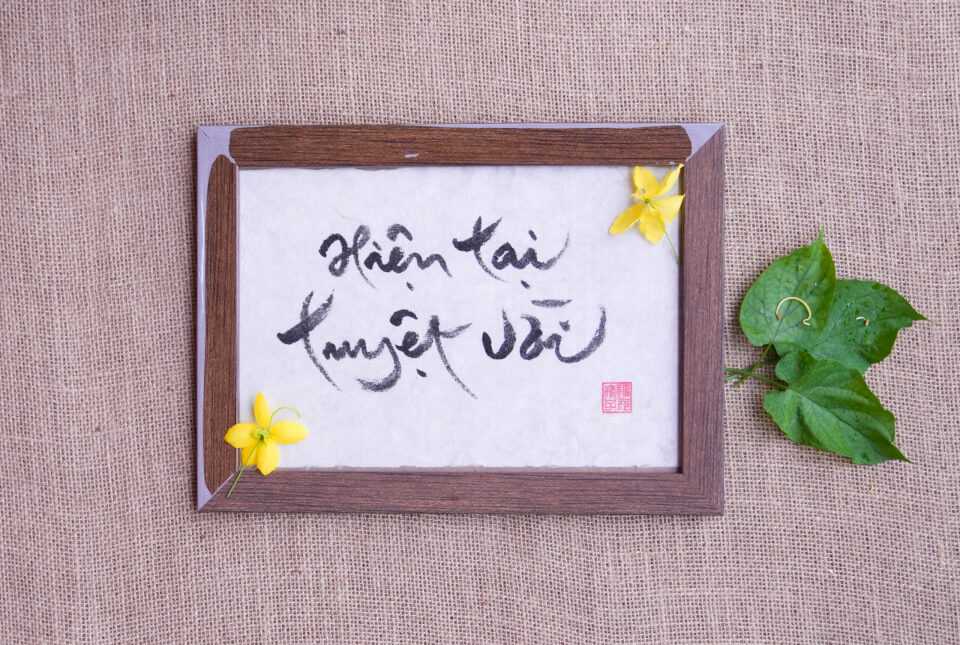 Hiện tại
tuyệt vời